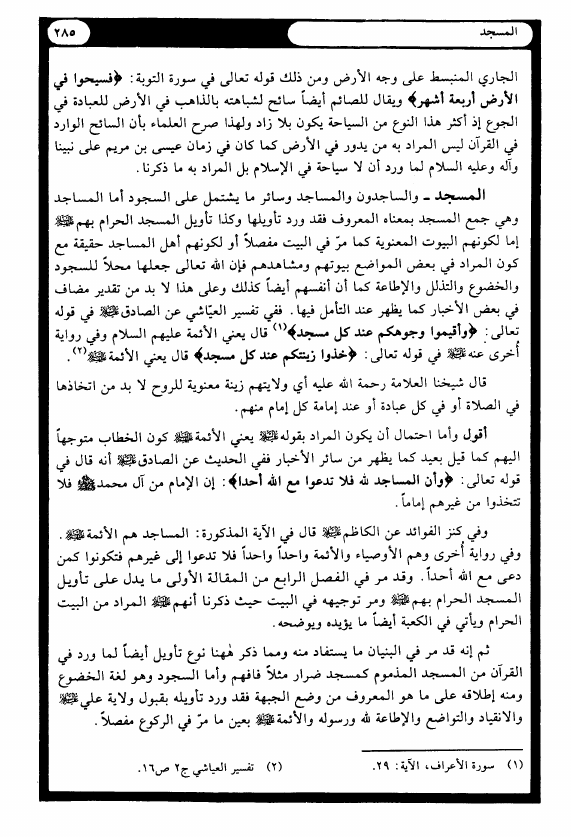 المسجد
٢٨٥
الجاري المنبسط على وجه الأرض ومن ذلك قوله تعالى في سورة التوبة: ﴿فسيحوا في
الأرض أربعة أشهر﴾ ويقال للصائم أيضاً سائح لشباهته بالذاهب في الأرض للعبادة في
الجوع إذ أكثر هذا النوع من السياحة يكون بلا زاد ولهذا صرح العلماء بأن السائح الوارد
في القرآن ليس المراد به من يدور في الأرض كما كان في زمان عيسى بن مريم على نبينا
وآله وعليه السلام لما ورد أن لا سياحة في الإسلام بل المراد به ما ذكرنا.
المسجد ـ والساجدون والمساجد وسائر ما يشتمل على السجود أما المساجد
وهي جمع المسجد بمعناه المعروف فقد ورد تأويلها وكذا تأويل المسجد الحرام بهم ﷺ
إما لكونهم البيوت المعنوية كما مرّ في البيت مفصلاً أو لكونهم أهل المساجد حقيقة مع
كون المراد في بعض المواضع بيوتهم ومشاهدهم فإن الله تعالى جعلها محلاً للسجود
والخضوع والتذلل والإطاعة كما أن أنفسهم أيضاً كذلك وعلى هذا لا بد من تقدير مضاف
في بعض الأخبار كما يظهر عند التأمل فيها. ففي تفسير العيّاشي عن الصادق ﷺ في قوله
تعالى: ﴿وأقيموا وجوهكم عند كل مسجد﴾(١) قال يعني الأئمة عليهم السلام وفي رواية
أُخرى عنه ﷺ في قوله تعالى: ﴿خذوا زينتكم عند كل مسجد﴾ قال يعني الأئمة ﷺ(٢).
قال شيخنا العلامة رحمة الله عليه أي ولايتهم زينة معنوية للروح لا بد من اتخاذها
في الصلاة أو في كل عبادة أو عند إمامة كل إمام منهم.
أقول وأما احتمال أن يكون المراد بقوله ﷺ يعني الأئمة ﷺ كون الخطاب متوجهاً
اليهم كما قيل بعيد كما يظهر من سائر الأخبار ففي الحديث عن الصادق ﷺ أنه قال في
قوله تعالى: ﴿وأن المساجد لله فلا تدعوا مع الله أحدا﴾: إن الإمام من آل محمد ﷺ فلا
تتخذوا من غيرهم إماماً.
وفي كنز الفوائد عن الكاظم ﷺ قال في الآية المذكورة: المساجد هم الأئمة ﷺ.
وفي رواية أُخرى وهم الأوصياء والأئمة واحداً واحداً فلا تدعوا إلى غيرهم فتكونوا كمن
دعى مع الله أحداً. وقد مر في الفصل الرابع من المقالة الأولى ما يدل على تأويل
المسجد الحرام بهم ﷺ ومر توجيهه في البيت حيث ذكرنا أنهم ﷺ المراد من البيت
الحرام ويأتي في الكعبة أيضاً ما يؤيده ويوضحه.
ثم إنه قد مر في البنيان ما يستفاد منه ومما ذكر هٰهنا نوع تأويل أيضاً لما ورد في
القرآن من المسجد المذموم كمسجد ضرار مثلاً فافهم وأما السجود وهو لغة الخضوع
ومنه إطلاقه على ما هو المعروف من وضع الجبهة فقد ورد تأويله بقبول ولاية علي ﷺ
والانقياد والتواضع والإطاعة لله ورسوله والأئمة ﷺ بعين ما مرّ في الركوع مفصلاً.
(١) سورة الأعراف، الآية: ٢٩.
(٢) تفسير العياشي ج٢ ص١٦.